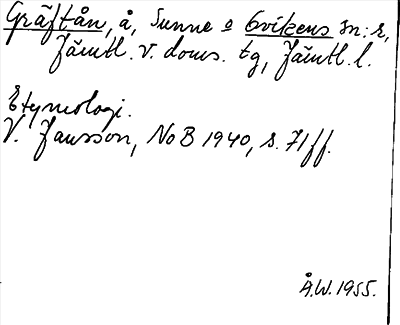 Gräftån, å, Sunne o Ovikens sn:r,
Jämtl. v. doms. tg, Jämtl. l.
Etymologi.
V. Jansson, NoB 1940, s. 71 ff.
Å.W. 1955.